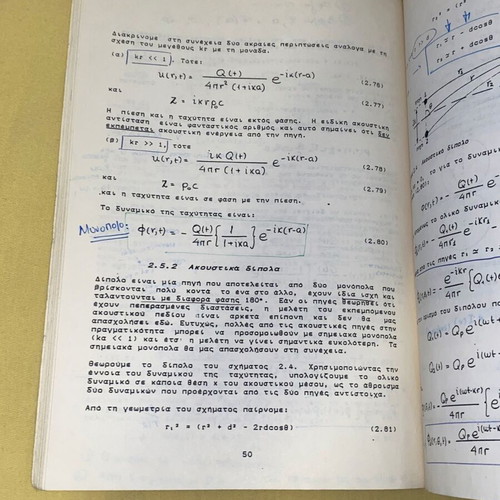 Διακρίνουμε στη συνέχεια δυο ακραίες περιπτώσεις ανάλογα με τη
σχέση του μεγέθους kr με τη μονάδα.
(α) kr << 1, Τότε:
u(r,t) = Q(t) / 4πr² (1+ika) e^-iκ(r-a) (2.76)
και
Z = iκrρ₀c (2.77)
Η πίεση και η ταχύτητα είναι εκτός φάσης. Η ειδική ακουστική
αντίσταση είναι φανταστικός αριθμός και αυτό σημαίνει ότι δεν
εκπέμπεται ακουστική ενέργεια από την πηγή.
(β) kr >> 1, τότε
u(r,t) = iκ Q(t) / 4πr (1+ika) e^-iκ(r-a) (2.78)
και
Z = ρ₀c (2.79)
και η ταχύτητα είναι σε φάση με την πίεση.
Το δυναμικό της ταχύτητας είναι:
Μονοπολο: φ(r,t) = - Q(t) / 4πr { 1 / 1+ικα } e^-iκ(r-a) (2.80)
2.5.2 Ακουστικά δίπολα
Δίπολο είναι μία πηγή που αποτελείται από δύο μονόπολα που
βρίσκονται πολύ κοντά το ένα στο άλλο, έχουν ίδια ισχή και
ταλαντούνται με διαφορά φάσης 180°. Εάν οι πηγές θεωρηθεί ότι
έχουν πεπερασμένες διαστάσεις, η μελέτη του εκπεμπόμενου
ακουστικού πεδίου είναι αρκετά επίπονη και δεν θα μας
απασχολήσει εδώ. Ευτυχώς, πολλές από τις ακουστικές πηγές στην
πραγματικότητα μπορεί να προσομοιωθούν με σημειακά μονόπολα
(ka << 1) και έτσι η μελέτη να γίνει σημαντικά ευκολότερη. Τα
σημειακά μονόπολα θα μας απασχολήσουν στη συνέχεια.
Θεωρούμε το δίπολο του σχήματος 2.4. Χρησιμοποιώντας την
έννοια του δυναμικού της ταχύτητας, υπολογίζουμε το ολικό
δυναμικό σε κάποια θέση x του ακουστικού μέσου, ως το άθροισμα
δύο δυναμικών που προέρχονται από τις δύο πηγές αντίστοιχα.
Από τη γεωμετρία του σχήματος παίρνουμε:
r₁² = (r² + d² - 2rdcosθ) (2.81)
50